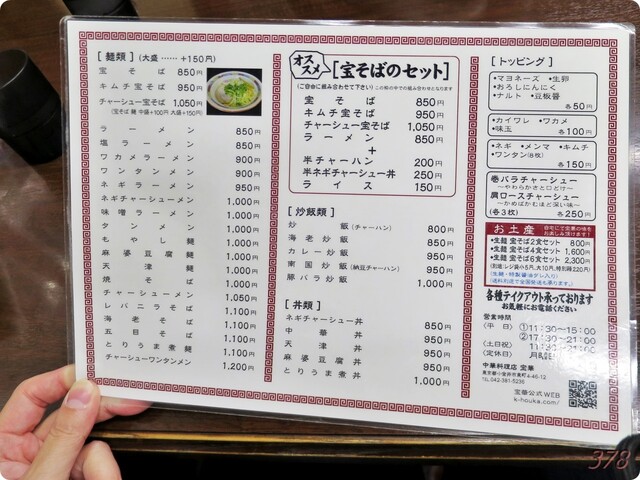 [ 麺類 ] (大盛 …… +150円)
宝そば 850円
キムチ宝そば 950円
チャーシュー宝そば 1,050円
(宝そば 麺 中盛+100円 大盛+150円)
ラーメン 850円
塩ラーメン 850円
ワカメラーメン 900円
ワンタンメン 900円
ネギラーメン 950円
ネギチャーシューメン 1,000円
味噌ラーメン 1,000円
タンメン 1,000円
もやし麺 1,000円
麻婆豆腐麺 1,000円
天津麺 1,000円
焼そば 1,000円
チャーシューメン 1,050円
レバニラそば 1,100円
海老そば 1,100円
五目そば 1,100円
とりうま煮麺 1,100円
チャーシューワンタンメン 1,200円
オススメ [宝そばのセット]
(ご自由に組み合わせて下さい)
宝そば 850円
キムチ宝そば 950円
チャーシュー宝そば 1,050円
ラーメン 850円
+
半チャーハン 200円
半ネギチャーシュー丼 250円
ライス 150円
[ 炒飯類 ]
炒飯(チャーハン) 800円
海老炒飯 850円
カレー炒飯 950円
南国炒飯(納豆チャーハン) 950円
豚バラ炒飯 1,000円
[ 丼類 ]
ネギチャーシュー丼 850円
中華丼 950円
天津丼 950円
麻婆豆腐丼 950円
とりうま煮丼 1,000円
[ トッピング ]
•マヨネーズ •生卵
•おろしにんにく
•ナルト •豆板醤
各50円
•カイワレ •ワカメ
•味玉 各100円
•ネギ •メンマ •キムチ
•ワンタン(8枚) 各150円
巻バラチャーシュー
〜やわらかさと口どけ〜
肩ロースチャーシュー
〜かめばかむほど深い味〜
(各3枚) 各250円
お土産 自宅にて宝華の味をお楽しみ頂けます!
•生麺 宝そば2食セット 800円
•生麺 宝そば4食セット 1,600円
•生麺 宝そば6食セット 2,300円
(別途:レジ袋小5円、大10円、特別箱220円)
(生麺・特製醤油ダレ入り)
各種テイクアウト承っております
お気軽にお電話ください
営業時間
(平 日) ①11:30〜15:00
②17:30〜21:00
(土日祝) 11:30〜21:00
(定休日) 月曜日
中華料理店 宝華
東京都小金井市東町4-46-12
TEL 042-381-5236
宝華公式WEB
k-houka.com/
378